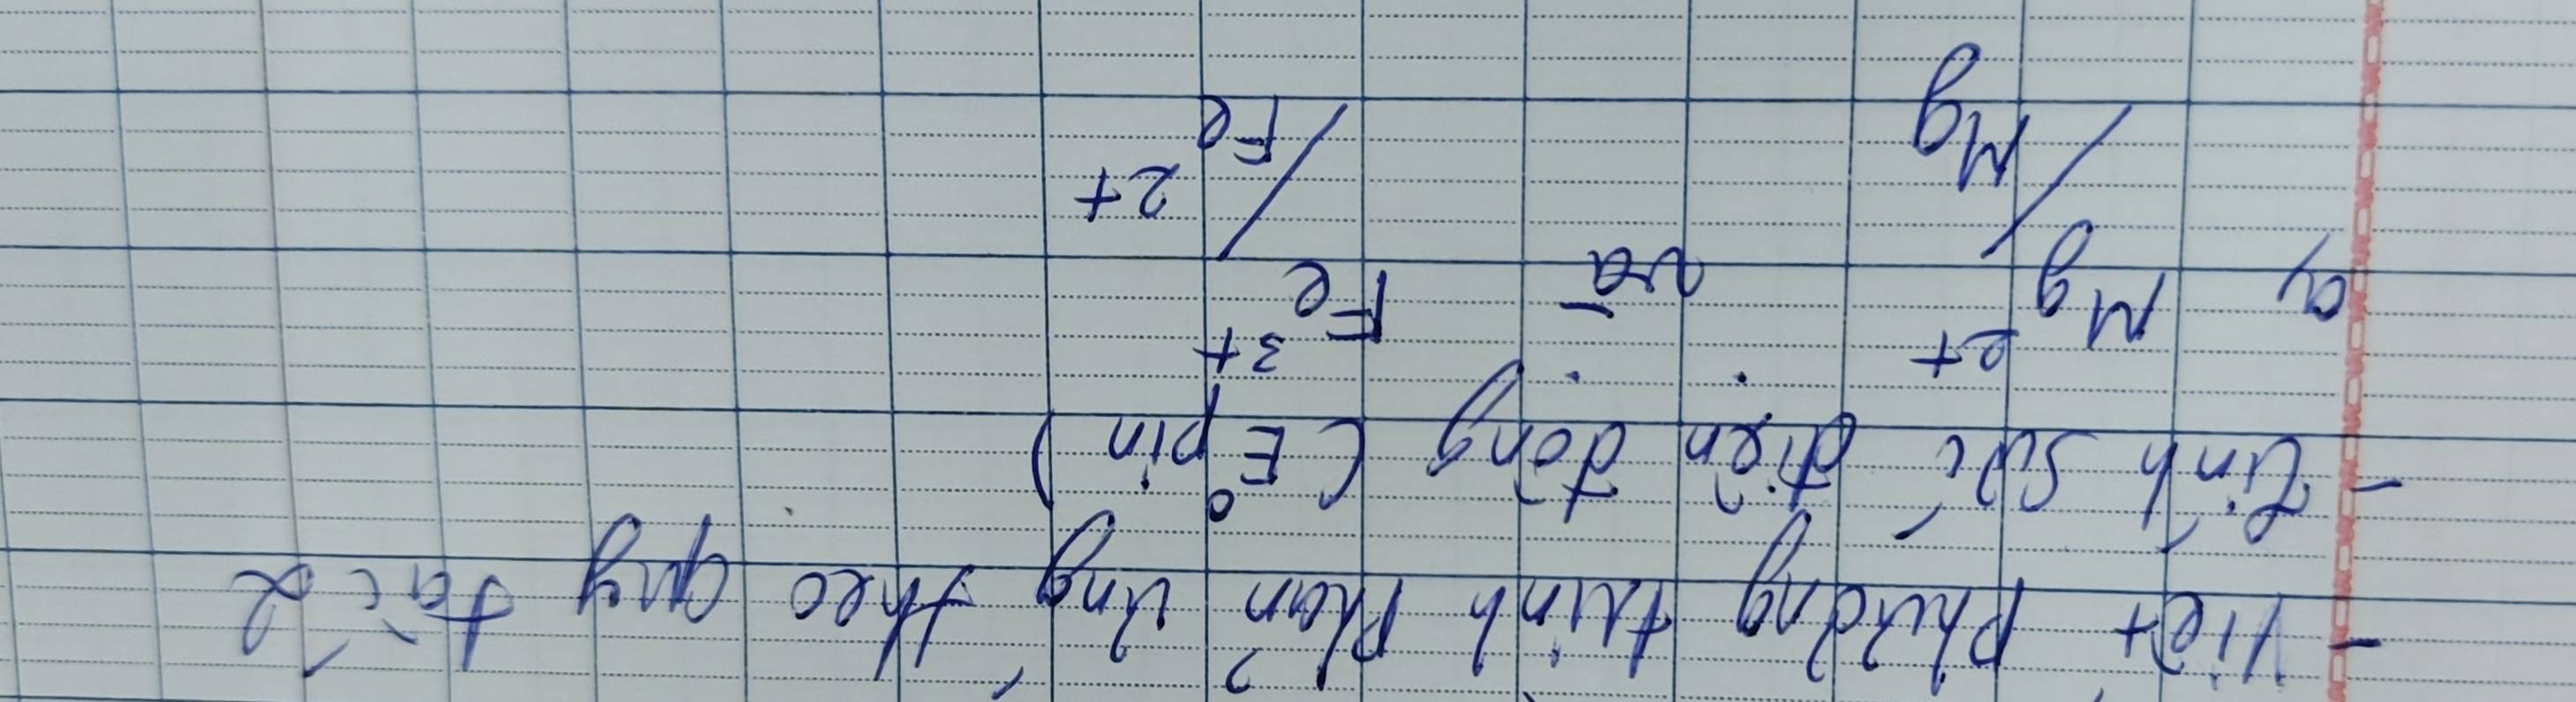 - Viết phương trình phản ứng theo quy tắc α
- Tính sức điện động (E°pin)
a) Mg²⁺/Mg và Fe³⁺/Fe²⁺